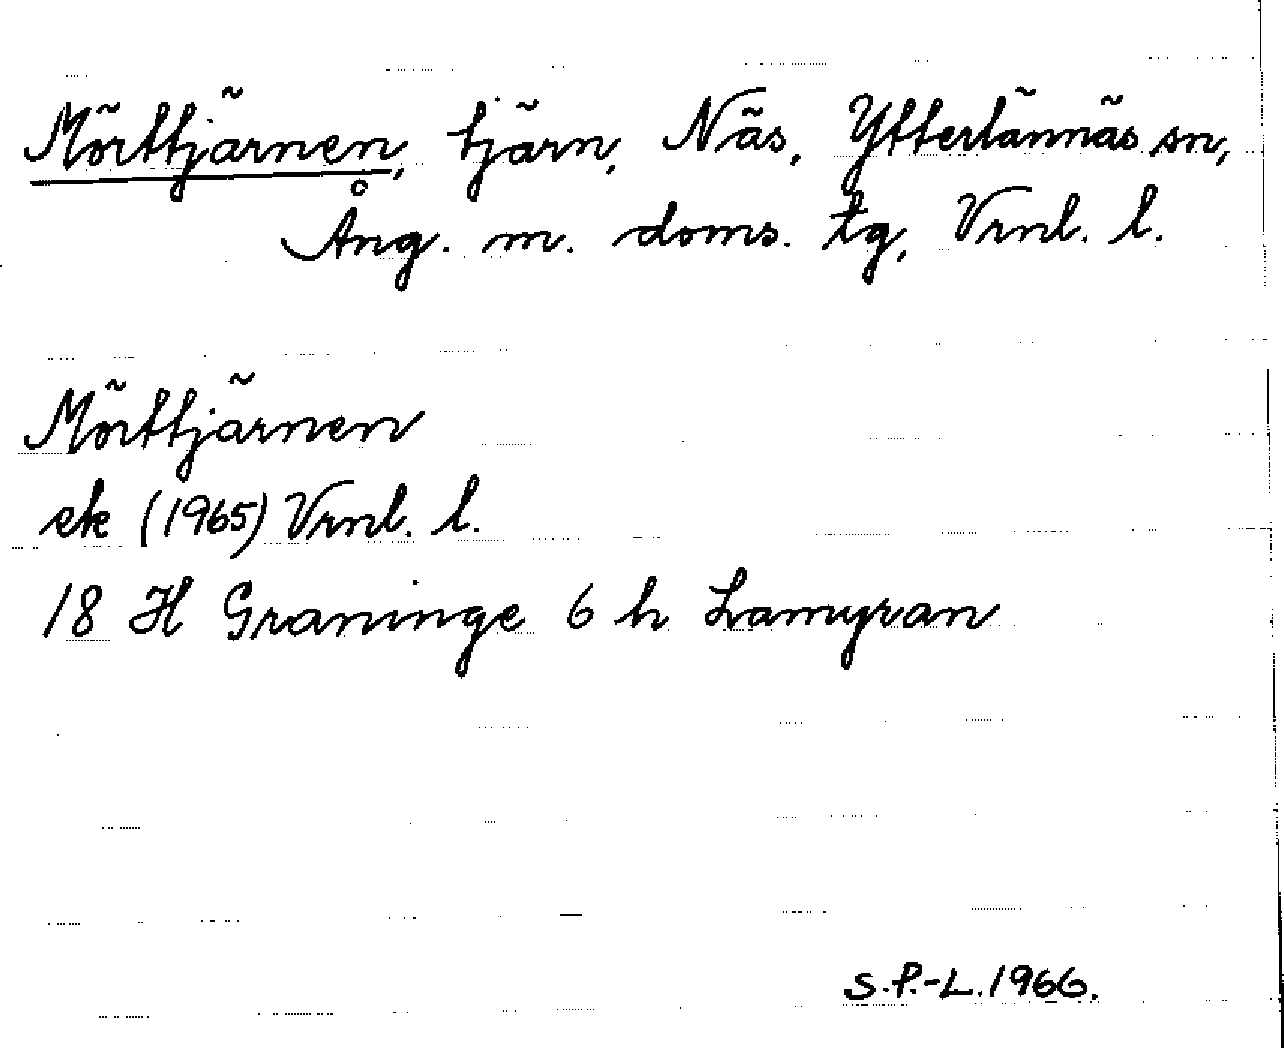 Mörttjärnen, tjärn, Näs, Ytterlännäs sn,
Ång. m. doms. tg, Vrnl. l.
Mörttjärnen
ek (1965) Vrnl. l.
18 H Graninge 6 h Lamyran
S.P.-L.1966.